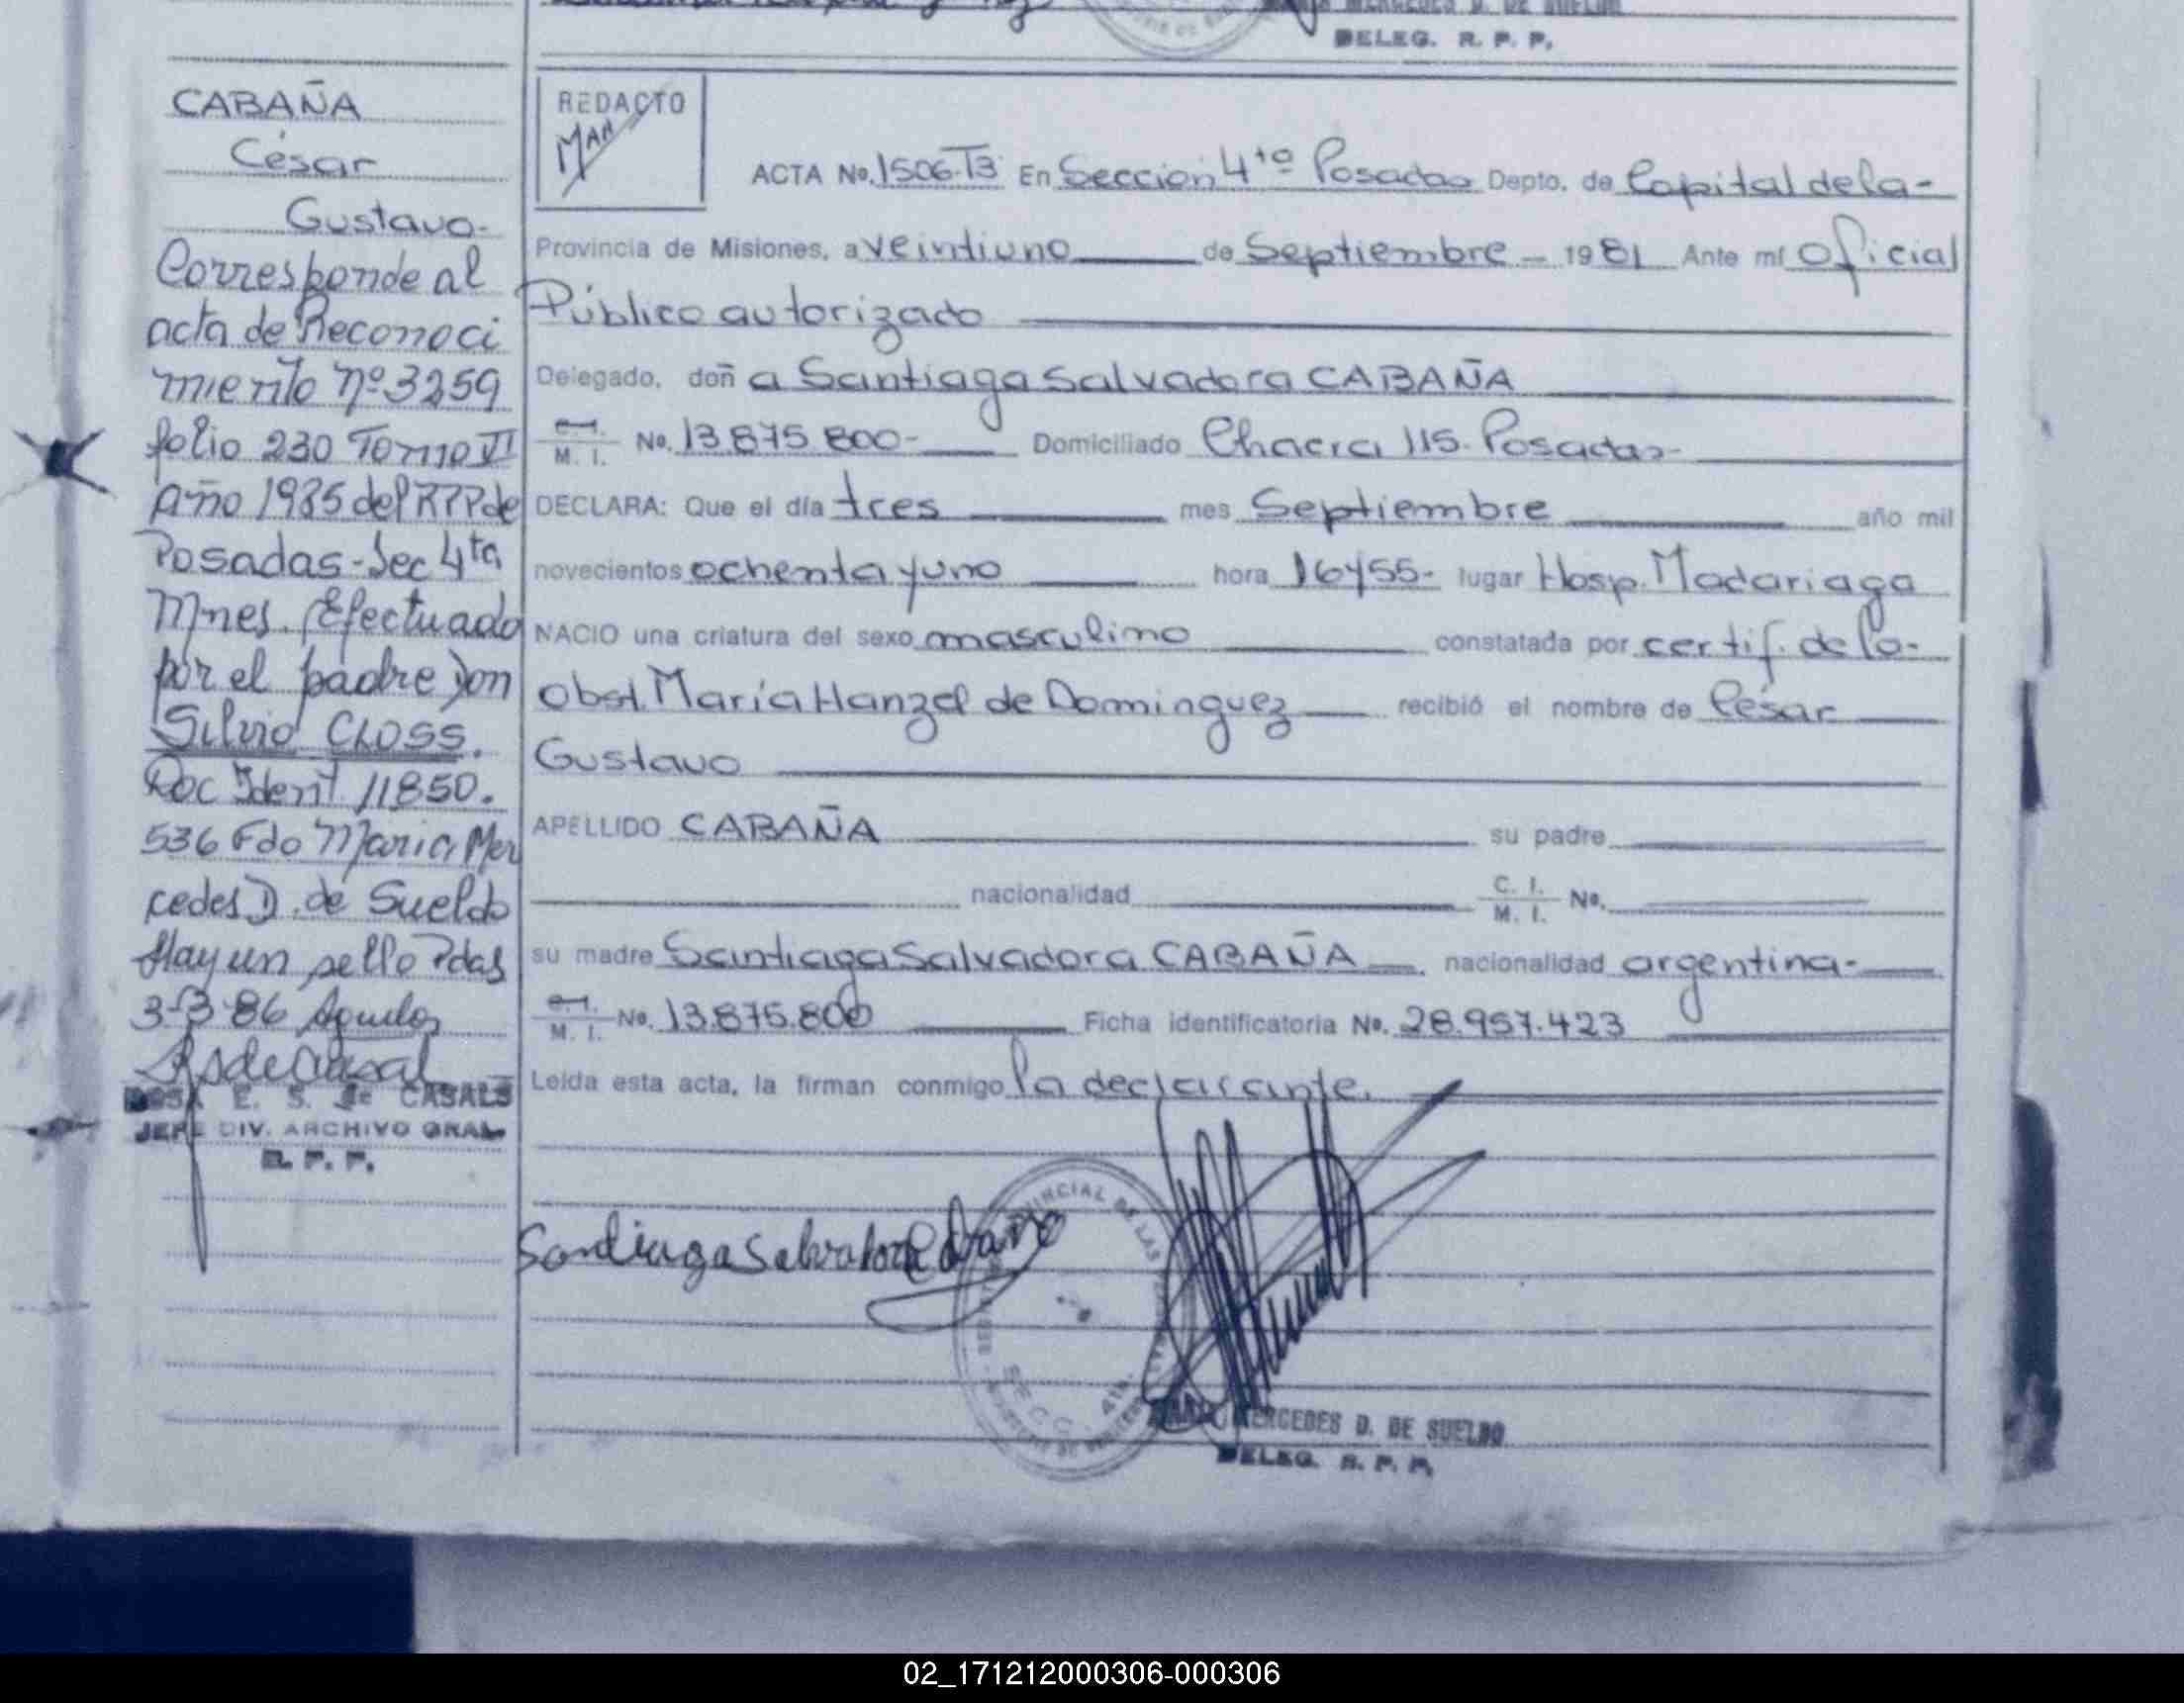 MERCEDES D. DE SUELDO
DELEG. R. P. P.
CABAÑA
César
Gustavo-
Corresponde al
acta de Reconoci
miento nº 3259
folio 230 Tomo VI
Año 1985 del RPP de
Posadas-Sec 4ta
Mnes. Efectuado
por el padre Don
Silvio CLOSS.
Doc Ident 11850.
536 Fdo Maria Mer
cedes D. de Sueldo
Hay un sello Pdas
3-3-86
ROSA E. S. de CASALS
JEFE DIV. ARCHIVO GRAL.
R. P. P.
REDACTO
MAH
ACTA No. 1506-T3 En Sección 4ta Posadas Depto. de Capital de la-
Provincia de Misiones, a veintiuno de Septiembre - 1981 Ante mí Oficial
Público autorizado
Delegado, doñ a Santiaga Salvadora CABAÑA
C.I. M. I. No. 13.875.800- Domiciliado Chacra 115- Posadas-
DECLARA: Que el día tres mes Septiembre año mil
novecientos ochenta y uno hora 16y55- lugar Hosp. Madariaga
NACIO una criatura del sexo masculino constatada por certif. de la-
Obst. María Hanzel de Dominguez recibió el nombre de César
Gustavo
APELLIDO CABAÑA su padre
nacionalidad C. I. M. I. No.
su madre Santiaga Salvadora CABAÑA nacionalidad argentina-
C.I. M. I. No. 13.875.800 Ficha identificatoria No. 28.957.423
Leída esta acta, la firman conmigo la declarante.
Santiaga Salvadora Cabaña
MERCEDES D. DE SUELDO
DELEG. R. P. P.
02_171212000306-000306